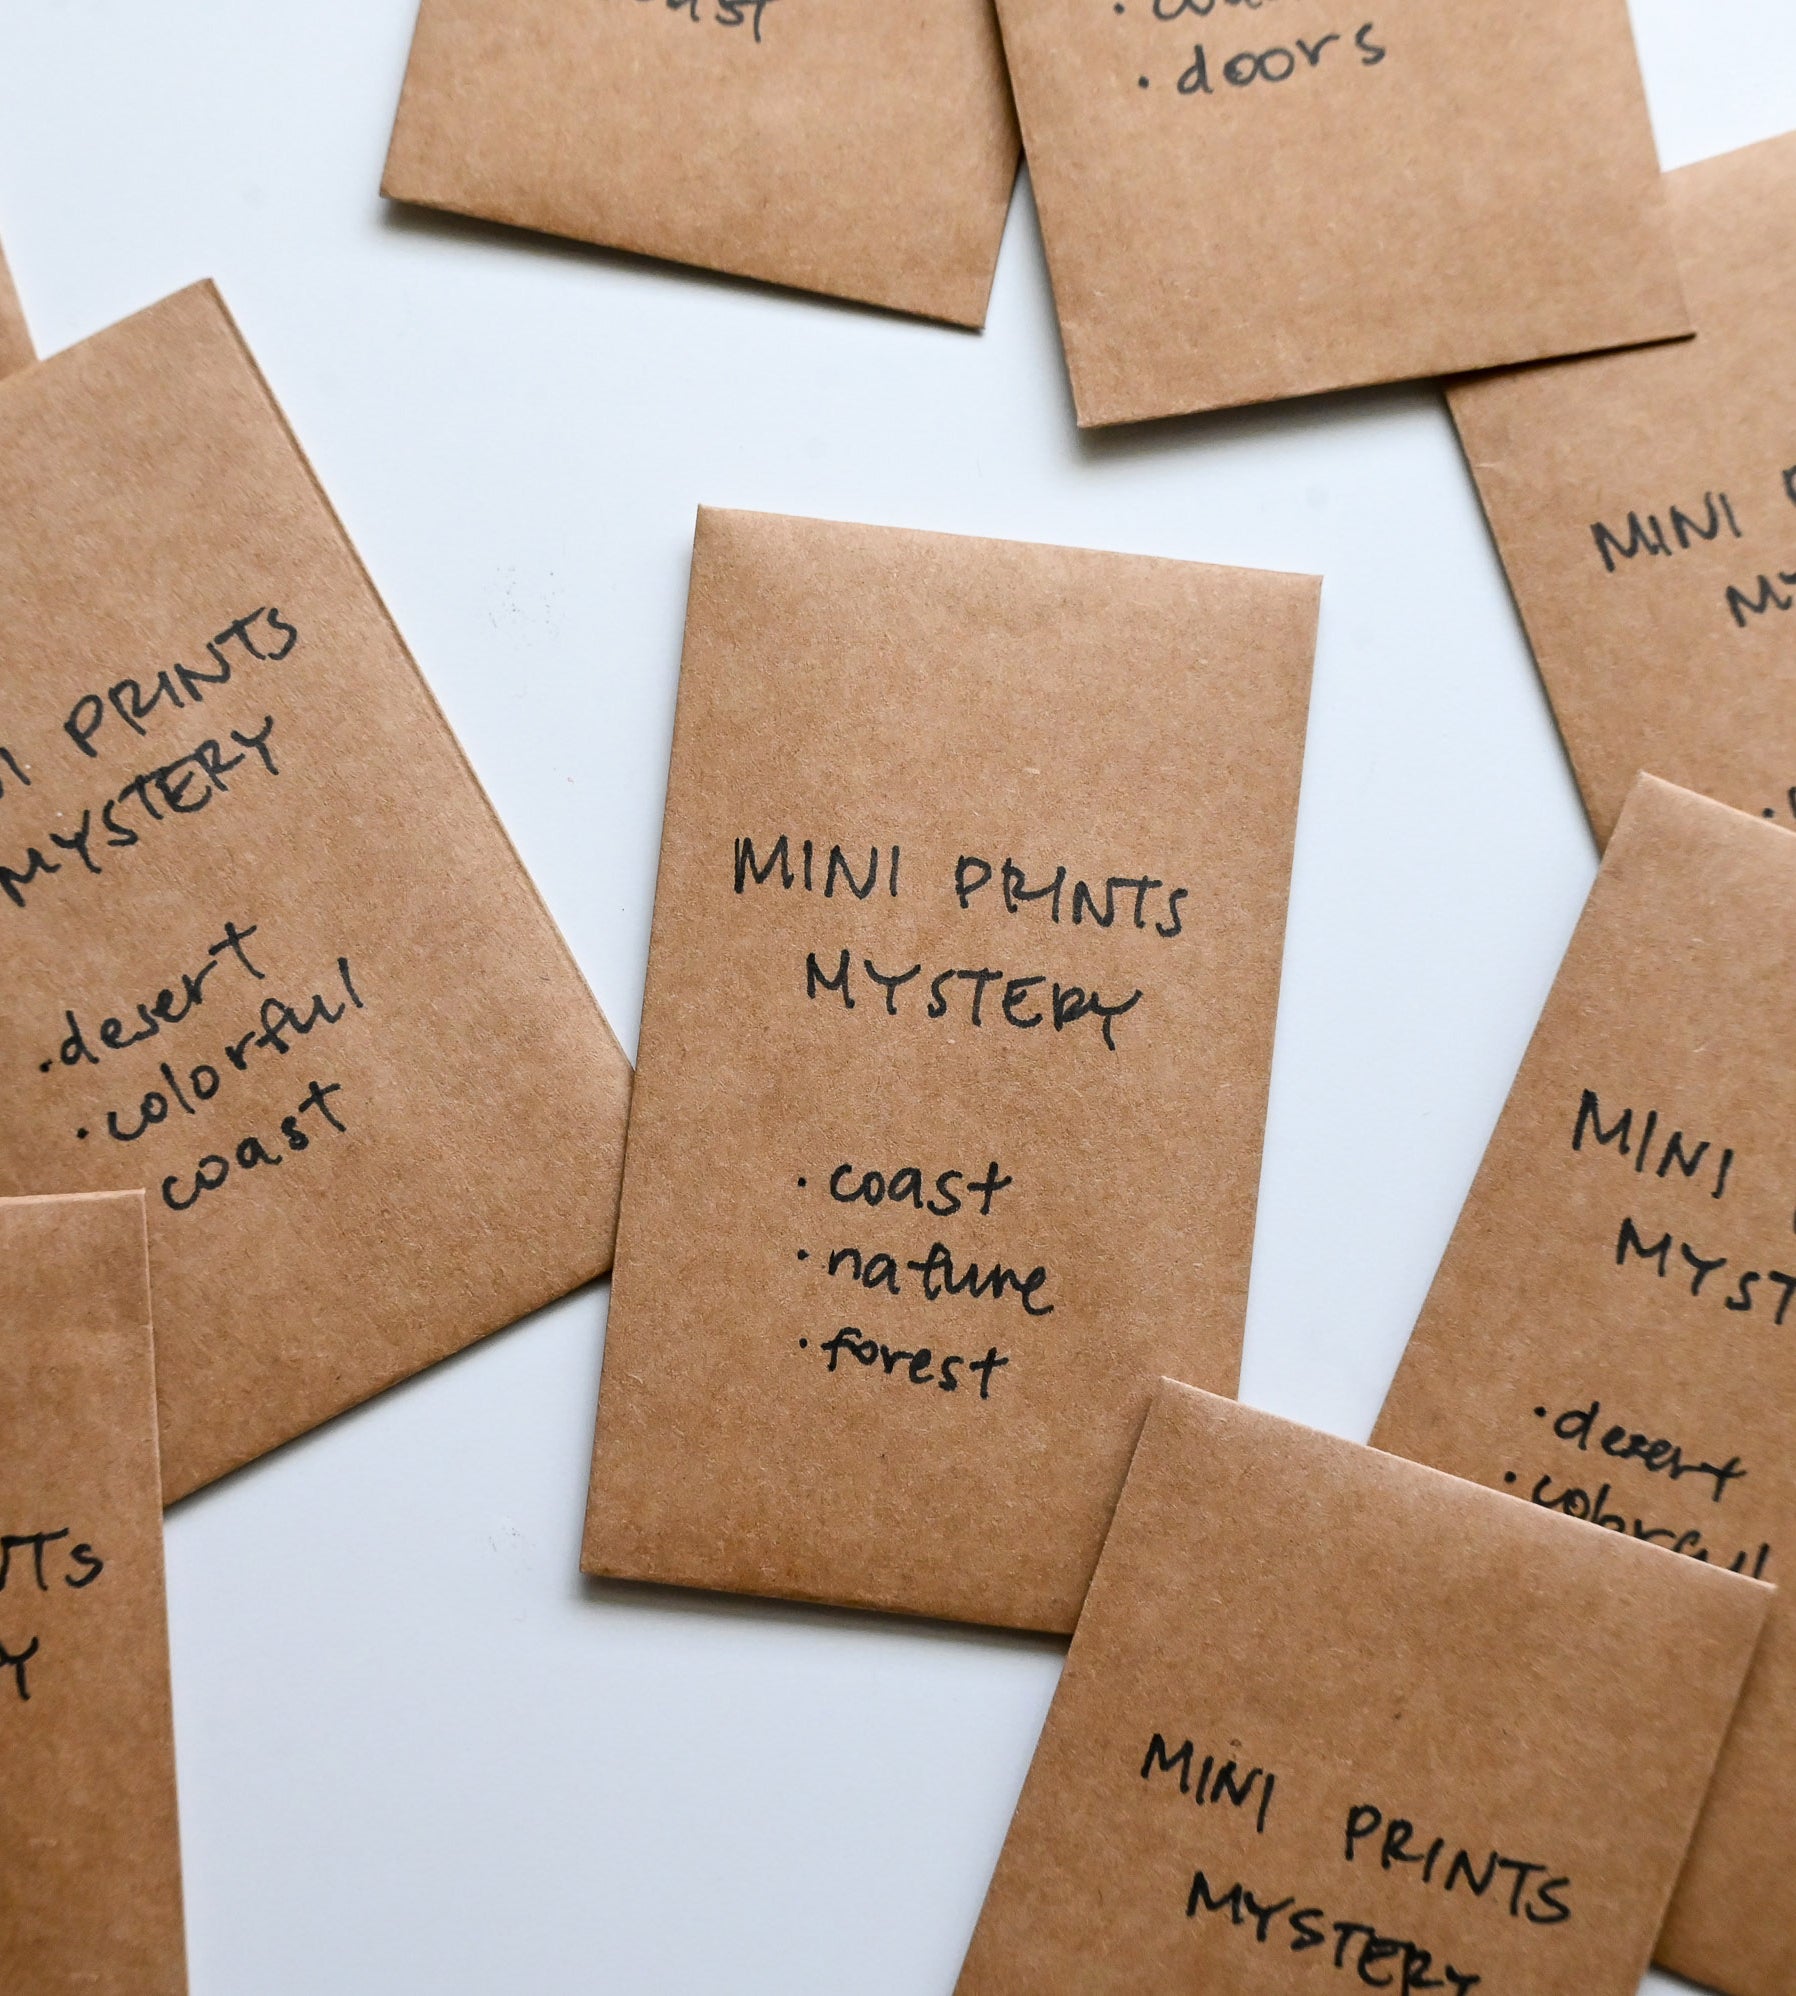 • doors
MINI
PRINTS
MYSTERY
• desert
• colorful
coast
MINI PRINTS
MYSTERY
• coast
• nature
• forest
MINI
• desert
• colorful
MINI PRINTS
MYSTERY